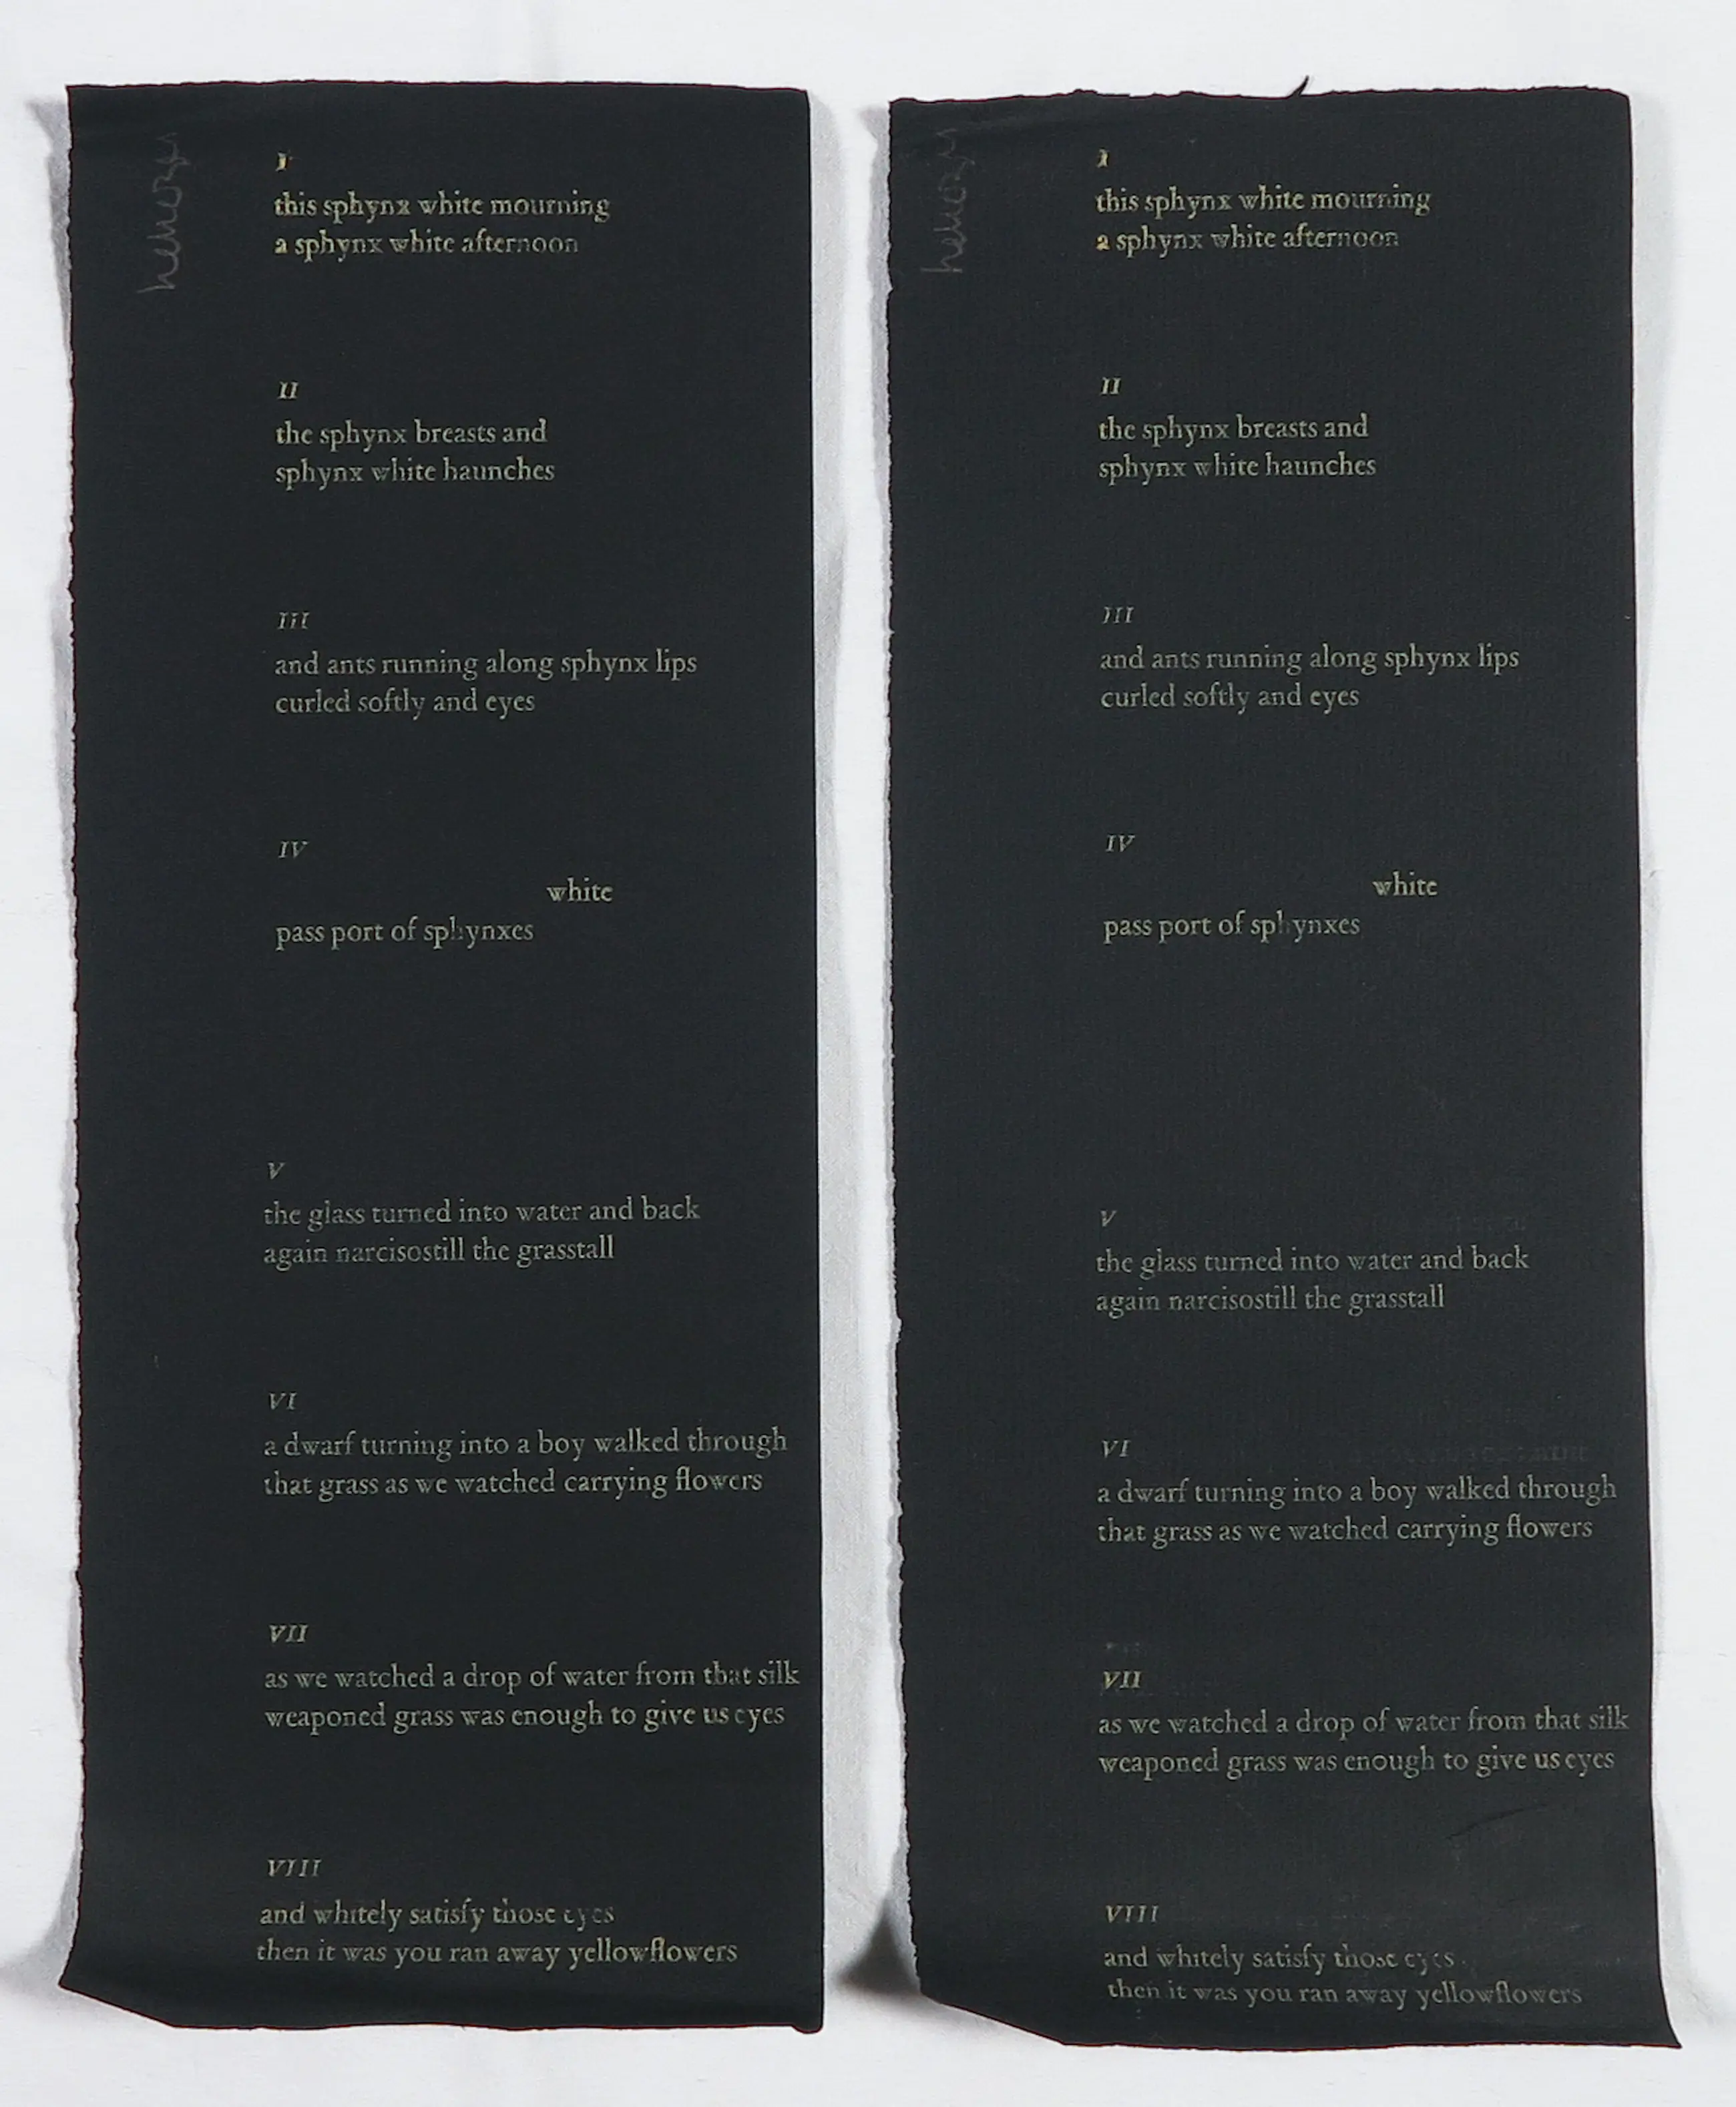 I
this sphynx white mourning
a sphynx white afternoon
II
the sphynx breasts and
sphynx white haunches
III
and ants running along sphynx lips
curled softly and eyes
IV
white
pass port of sphynxes
V
the glass turned into water and back
again narcisostill the grasstall
VI
a dwarf turning into a boy walked through
that grass as we watched carrying flowers
VII
as we watched a drop of water from that silk
weaponed grass was enough to give us eyes
VIII
and whitely satisfy those eyes
then it was you ran away yellowflowers
I
this sphynx white mourning
a sphynx white afternoon
II
the sphynx breasts and
sphynx white haunches
III
and ants running along sphynx lips
curled softly and eyes
IV
white
pass port of sphynxes
V
the glass turned into water and back
again narcisostill the grasstall
VI
a dwarf turning into a boy walked through
that grass as we watched carrying flowers
VII
as we watched a drop of water from that silk
weaponed grass was enough to give us eyes
VIII
and whitely satisfy those eyes
then it was you ran away yellowflowers